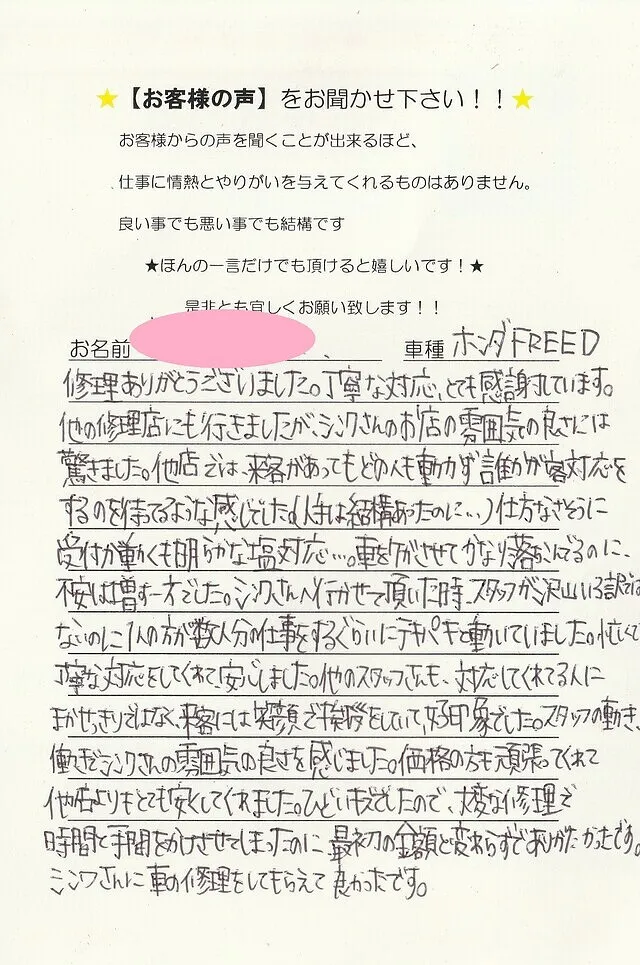 ★【お客様の声】をお聞かせ下さい！！★
お客様からの声を聞くことが出来るほど、
仕事に情熱とやりがいを与えてくれるものはありません。
良い事でも悪い事でも結構です
★ほんの一言だけでも頂けると嬉しいです！★
是非とも宜しくお願い致します！！
お名前 車種 ホンダFREED
修理ありがとうございました。丁寧な対応、とても感謝しています。
他の修理店にも行きましたが、シンワさんのお店の雰囲気の良さには
驚きました。他店では、来客があってもどの人も動かず誰かが客対応を
するのを待てるような感じでした(人手は結構あったのに…)仕方なさそうに
受付が動くも明らかな塩対応…。車をケガさせてかなり落ちこんでるのに、
不安は増す一方でした。シンワさんへ行かせて頂いた時、スタッフが沢山いる訳では
ないのに1人の方が数人分の仕事をするぐらいにテキパキと動いていました。忙しくて
丁寧な対応をしてくれて、安心しました。他のスタッフさんも、対応してくれてる人に
まかせっきりではなく、来客には笑顔で挨拶をしていて、好印象でした。スタッフの動き、
働きでシンワさんの雰囲気の良さを感じました。価格の方も頑張ってくれて
他店よりもとても安くしてくれました。ひどいキズでしたので、大変な修理で
時間と手間をかけさせてしまったのに最初の金額と変わらずでありがたかったです。
シンワさんに車の修理をしてもらえて良かったです。